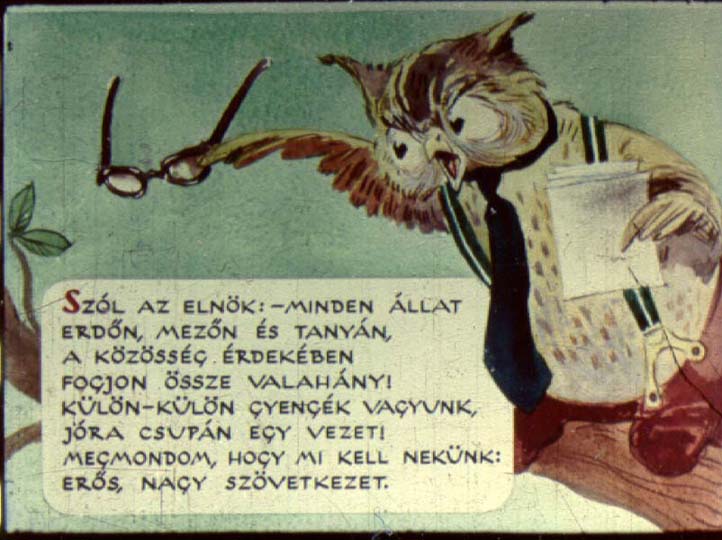 SZÓL AZ ELNÖK: –MINDEN ÁLLAT
ERDŐN, MEZŐN ÉS TANYÁN,
A KÖZÖSSÉG ÉRDEKÉBEN
FOGJON ÖSSZE VALAHÁNY!
KÜLÖN-KÜLÖN GYENGÉK VAGYUNK,
JÓRA CSUPÁN EGY VEZET!
MEGMONDOM, HOGY MI KELL NEKÜNK:
ERŐS, NAGY SZÖVETKEZET.